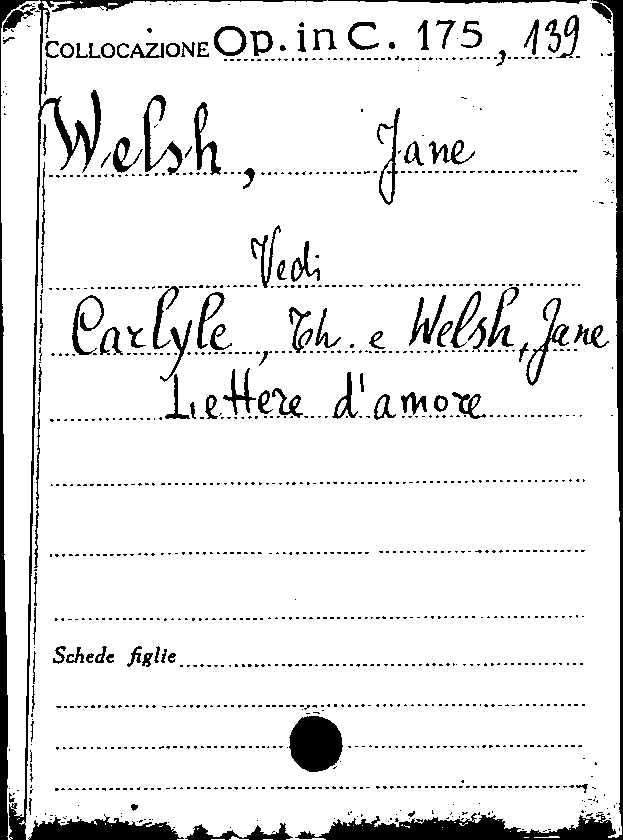 COLLOCAZIONE Op. in C. 175, 139
Welsh, Jane
Vedi
Carlyle, Th. e Welsh, Jane
Lettere d'amore
Schede figlie